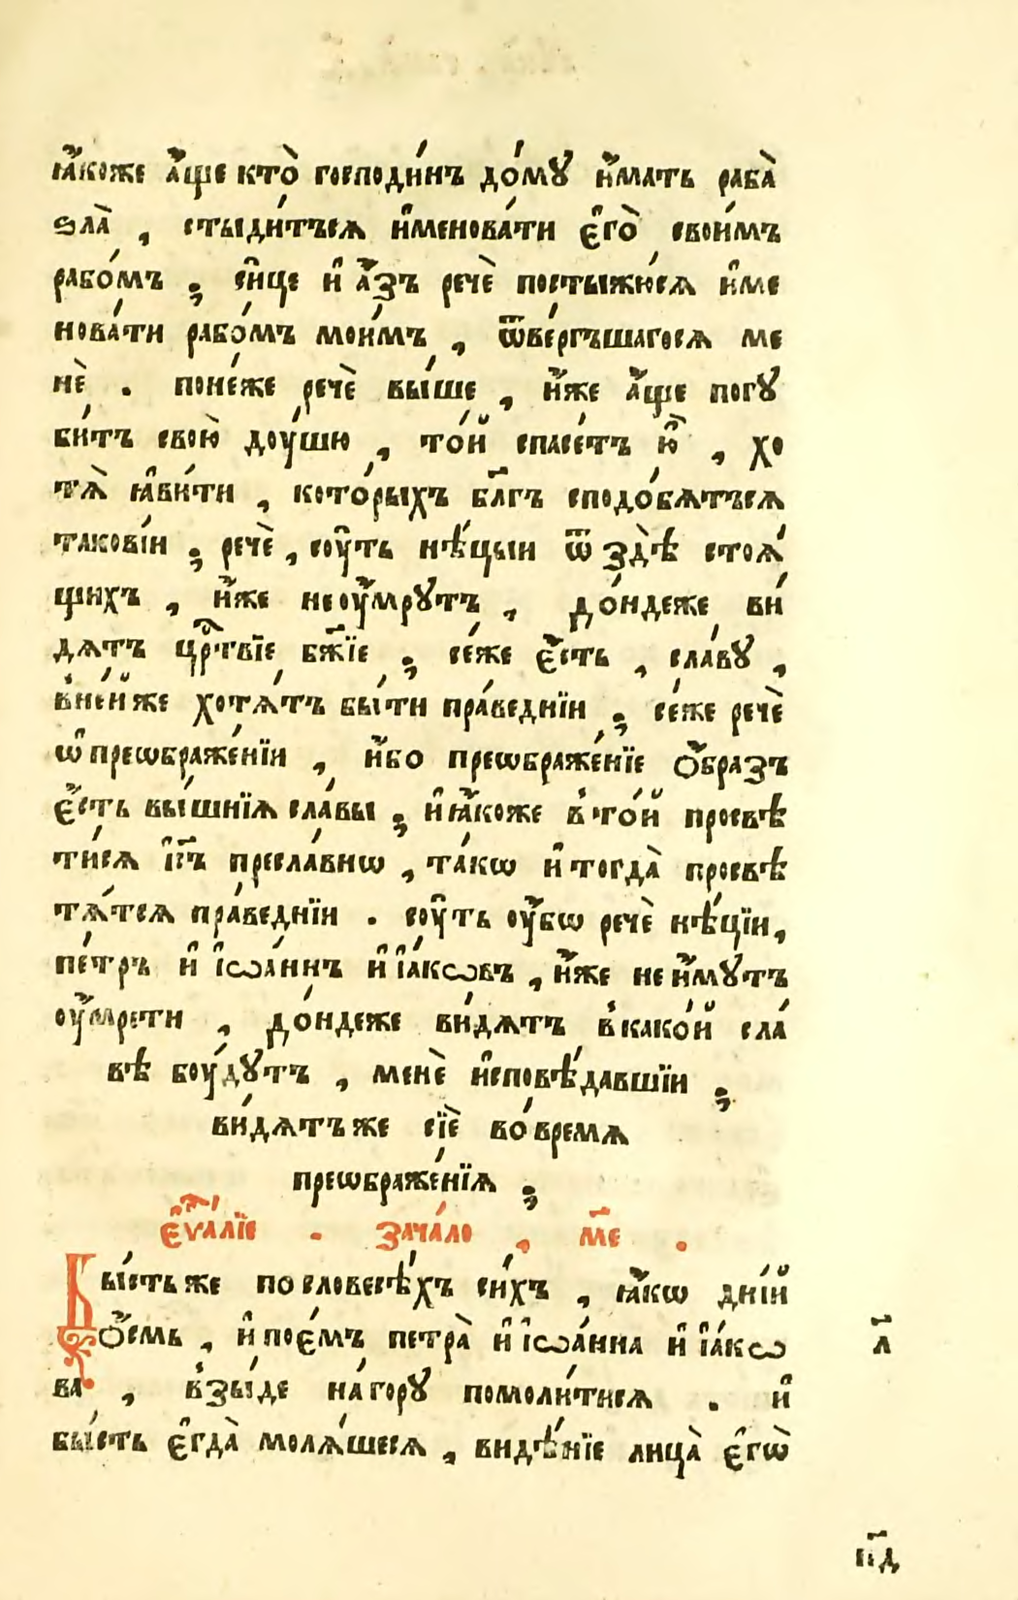 ꙗ҆́коже а҆́ще кто̀ господи́нъ до́мꙋ и҆́мать раба̀
ѕла̀ , стыди́тъсѧ и҆менова́ти є҆го̀ свои́мъ
рабо́мъ ; си́це и҆ а҆́зъ речѐ постыжю́сѧ и҆ме
нова́ти рабо́мъ мои́мъ , ѿве́ргъшагосѧ ме
нѐ . поне́же речѐ вы́ше , и҆́же а҆́ще погꙋ
би́тъ свою̀ доу́шю , то́й спасе́тъ ю҆̀ , хо
тѧ̀ ꙗ҆ви́ти , кото́рыхъ бл҃гъ сподо́бѧтъсѧ
такові́и ; речѐ , соу҆́ть нѣ́цыи ѿ здѣ̀ стоѧ́
щихъ , и҆́же неоу҆́мрꙋтъ , до́ндеже ви́
дѧтъ црⷭ҇твїе бж҃їе ; се́же є҆́сть , сла́вꙋ ,
вне́йже хотѧ́тъ бы́ти пра́веднїи ; се́же речѐ
ѡ҆ преѡбраже́нїи , и҆́бо преѡбраже́нїе ѻ҆́бразъ
є҆́сть вы́шнїѧ сла́вы ; и҆ ꙗ҆́коже в то́й просвѣ
ти́сѧ і҆с҃ъ пресла́внѡ , та́кѡ и҆ тогда̀ просвѣ
тѧ́тсѧ пра́веднїи . соу҆́ть оу҆́бѡ речѐ нѣ́цїи ,
пе́тръ и҆ і҆ѡа́ннъ и҆ і҆а́кѡвъ , и҆́же не и҆́мꙋтъ
оу҆́мрети , до́ндеже ви́дѧтъ в како́й сла́
вѣ боу́дꙋтъ , менѐ и҆сповѣ́давшїи ;
ви́дѧтъже сїѐ во́время
преѡбраже́нїѧ ;
є҆ѵⷢ҇алїе . зача́ло , м҃е .
Бы́стьже по словесѣ́хъ си́хъ , ꙗ҆́кѡ дні́й
ѻ҆́смь , и҆ пое́мъ петра̀ и҆ і҆ѡа́нна и҆ і҆а́кѡ
ва , взы́де на́горꙋ помоли́тисѧ . и҆
бы́сть є҆гда̀ молѧ́шесѧ , видѣ́нїе лица̀ є҆гѡ̀
л҃
п҃д